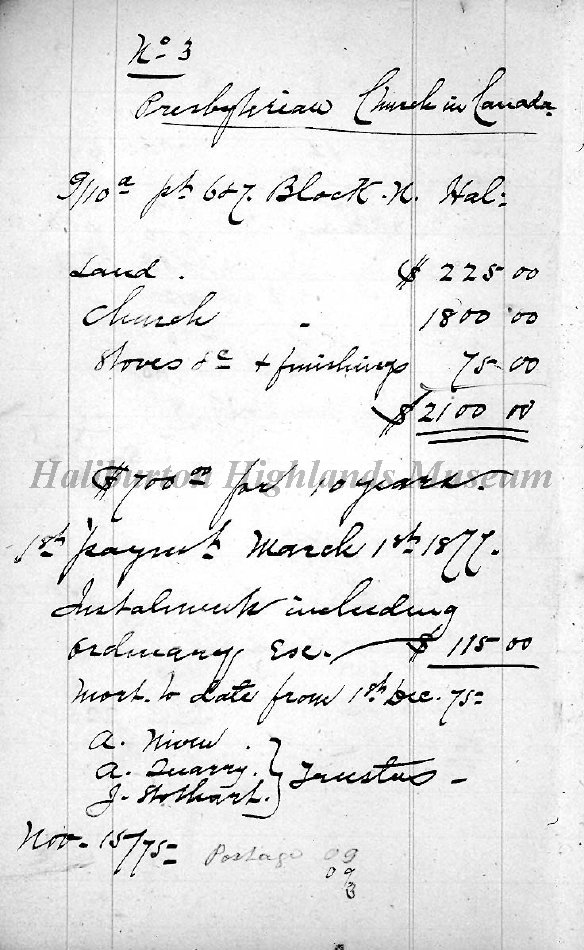 No 3
Presbyterian Church in Canada
9/10 a pt 6 & 7. Block. N. Hal:
Land. $ 225 00
Church - 1800 00
Stoves &c + furnishings 75 00
$ 2100 00
Haliburton Highlands Museum
$700 00 for 10 years -
1st paymt March 1st 1877.
Instalments including
ordinary Exc. - $ 115 00
Mort. to date from 1st Dec. 75-
A. Niven
A. Quarry. } Trustees -
J. Stothart.
Nov - 15/75- Postage 09
09
3